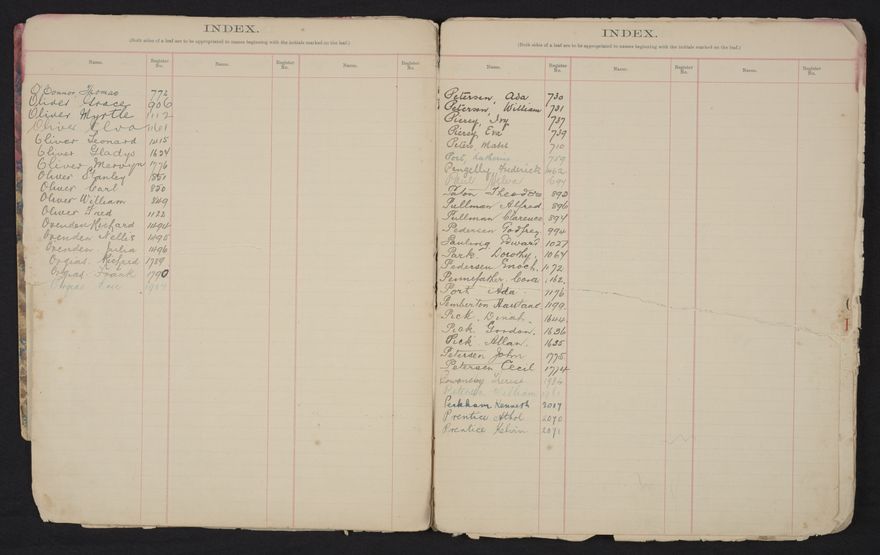 INDEX.
(Both sides of a leaf are to be appropriated to names beginning with the initials marked on the leaf.)
Name. Register No. Name. Register No. Name. Register No.
O'Connor, Thomas 772
Oliver Grace 906
Oliver Myrtle 1112
Oliver Elva 1401
Oliver Leonard 1415
Oliver Gladys 1624
Oliver Mervyn 1776
Oliver Stanley 851
Oliver Carl 850
Oliver William 849
Oliver Fred 1122
Ovenden Richard 1494
Ovenden Nellie 1495
Ovenden Julia 1496
Orgias Richard 1789
Orgias Frank 1790
Orgias
INDEX.
(Both sides of a leaf are to be appropriated to names beginning with the initials marked on the leaf.)
Name. Register No. Name. Register No. Name. Register No.
Petersen, Ada 730
Petersen, William 731
Piercy, Ivy 737
Piercy, Eva 739
Peters Mabel 710
Port, Katherine 759
Pengelly Frederick 462
694
Paton Theodore 892
Pullman Alfred 896
Pullman Clarence 894
Pedersen Godfrey 994
Pauling Edward 1027
Park Dorothy 1064
Pedersen Enoch 1172
Pennefather Cora 162
Port Ada 1176
Pemberton 1199
Pick Dinah 1644
Pick Gordon 1636
Pick Allan 1635
Petersen John 1775
Petersen Cecil 1774
1984
Petersen William
Peckham Kenneth 2017
Prentice Athol 2070
Prentice Kelvin 2071